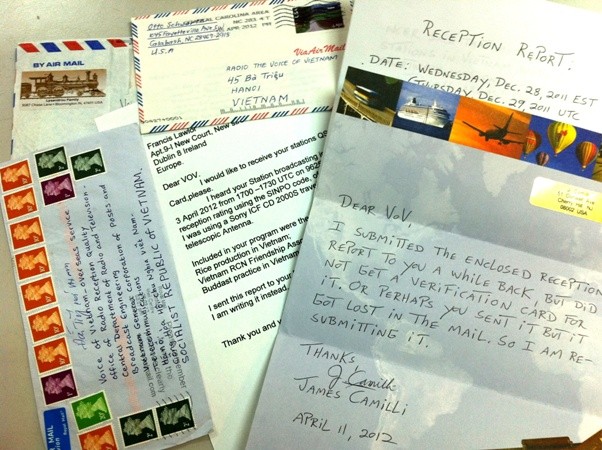 BY AIR MAIL
CAROLINA AREA
APR 2012 PM
Calabash, NC 28467-2013
U.S.A
Via Air Mail
RADIO THE VOICE OF VIETNAM
45 Bà Triệu
HANOI
VIETNAM
Francis Lawlor
Apt 9-I New Court, New
Dublin 8 Ireland
Europe.
Dear VOV.
I would like to receive your stations QS
Card,please.
I heard your Station broadcasting
3 April 2012 from 1700 –1730 UTC on 962
reception rating using the SINPO code, o
I was using a Sony ICF CD 2000S trave
telescopic Antenna.
Included in your program were the
Rice production in Vietnam;
Vietnam RCN Friendship Ass
Buddast practice in Vietnam
I sent this report to your
I am writing it instead.
Thank you and
RECEPTION REPORT.
DATE: WEDNESDAY, DEC. 28, 2011 EST
THURSDAY DEC. 29, 2011 UTC
USA
DEAR VOV,
I SUBMITTED THE ENCLOSED RECEPTION
REPORT TO YOU A WHILE BACK, BUT DID
NOT GET A VERIFICATION CARD FOR
IT. OR PERHAPS YOU SENT IT BUT IT
GOT LOST IN THE MAIL. SO I AM RE-
SUBMITTING IT.
THANKS
J Camilli
JAMES CAMILLI
APRIL 11, 2012
Vietnam overseas service
Voice of Vietnam
Office of Radio Reception Quality
Central Department of Radio and Television-
Broadcast Engineering
General Corporation of Posts and
Telecommunications
SOCIALIST REPUBLIC of VIETNAM.
AIR MAIL